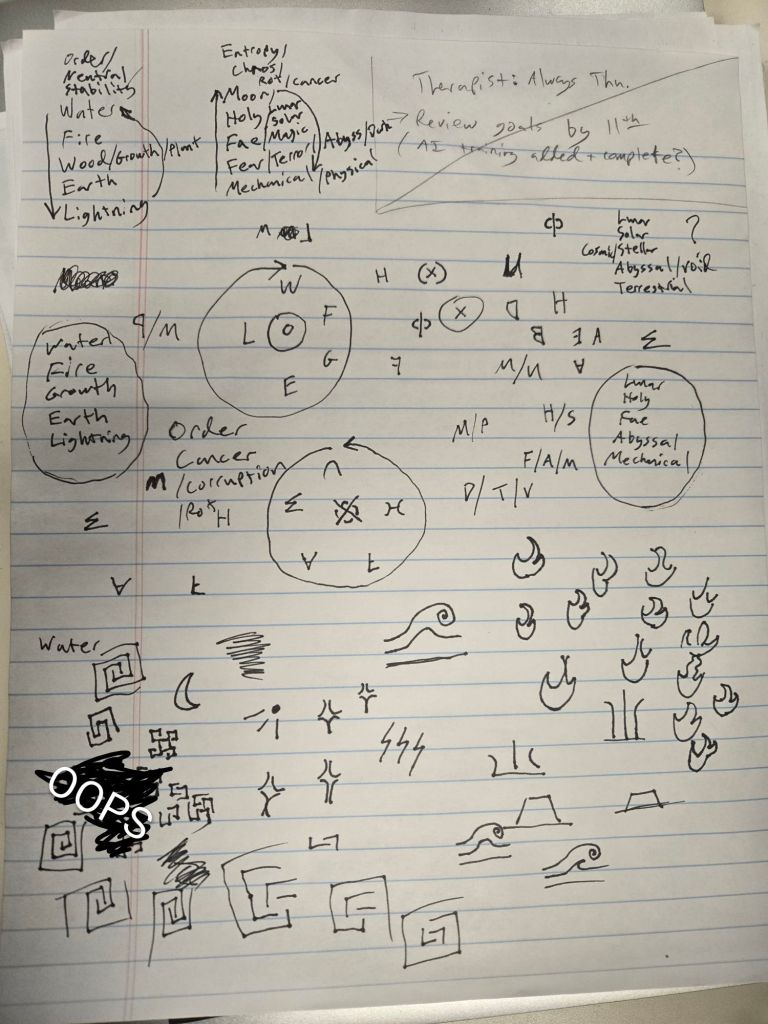 Order/
Neutral
Stability
Water
Fire
Wood/Growth/Plant
Earth
Lightning
Entropy/
Chaos/
Rot/Cancer
Moon/
Holy/Lunar
Solar
Fae/Magic
Fear/Terror/Abyss/Dark
Mechanical/Physical
Therapist: Always Thu.
→ Review goals by 11th
(AI training added + complete?)
Lunar
Solar
Cosmic/Stellar
Abyssal/Void
Terrestrial
?
W
H
(X)
M
W
F
L
O
G
E
X
D
H
M/P
Water
Fire
Growth
Earth
Lightning
Lunar
Holy
Fae
Abyssal
Mechanical
H/S
F/A/M
D/T/V
Order
Cancer
M/corruption
/Rot H
Water
OOPS